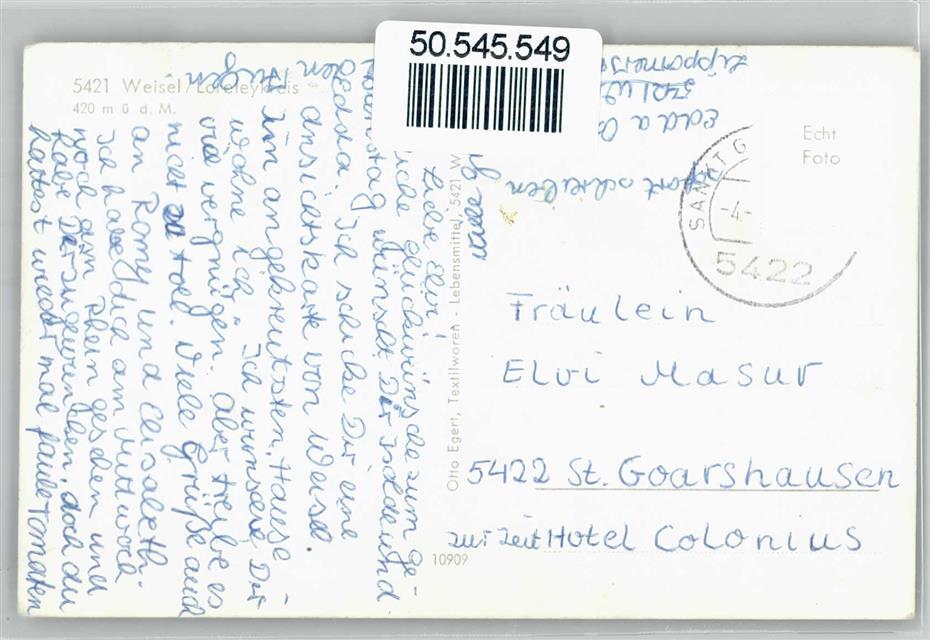 50.545.549
5421 Weisel/Loreleykreis
420 m ü. d. M.
Echt
Foto
SANKT G
-4.-
5422
Liebe Elvi!
Glückwünsche zum Ge-
burtstag wünscht Dir Isolde und
Edda. Ich schicke Dir eine
Ansichtskarte von Weisel
Im angekreutzten Hause
wohne ich. Ich wünsche Dir
viel vergnügen. Aber treibe es
nicht zu toll. Viele Grüße auch
an Romy und Elisabeth.
Ich habe Dich am Mittwoch
noch am Rhein gesehen und
habe Dir zugewunken, doch du
hattest wieder mal faule Tomaten
auf den Augen.
schreiben
Edda
5421
Otto Egert, Textilwaren - Lebensmittel, 5421 W
10909
Fräulein
Elvi Masur
5422 St. Goarshausen
zur Zeit Hotel Colonius